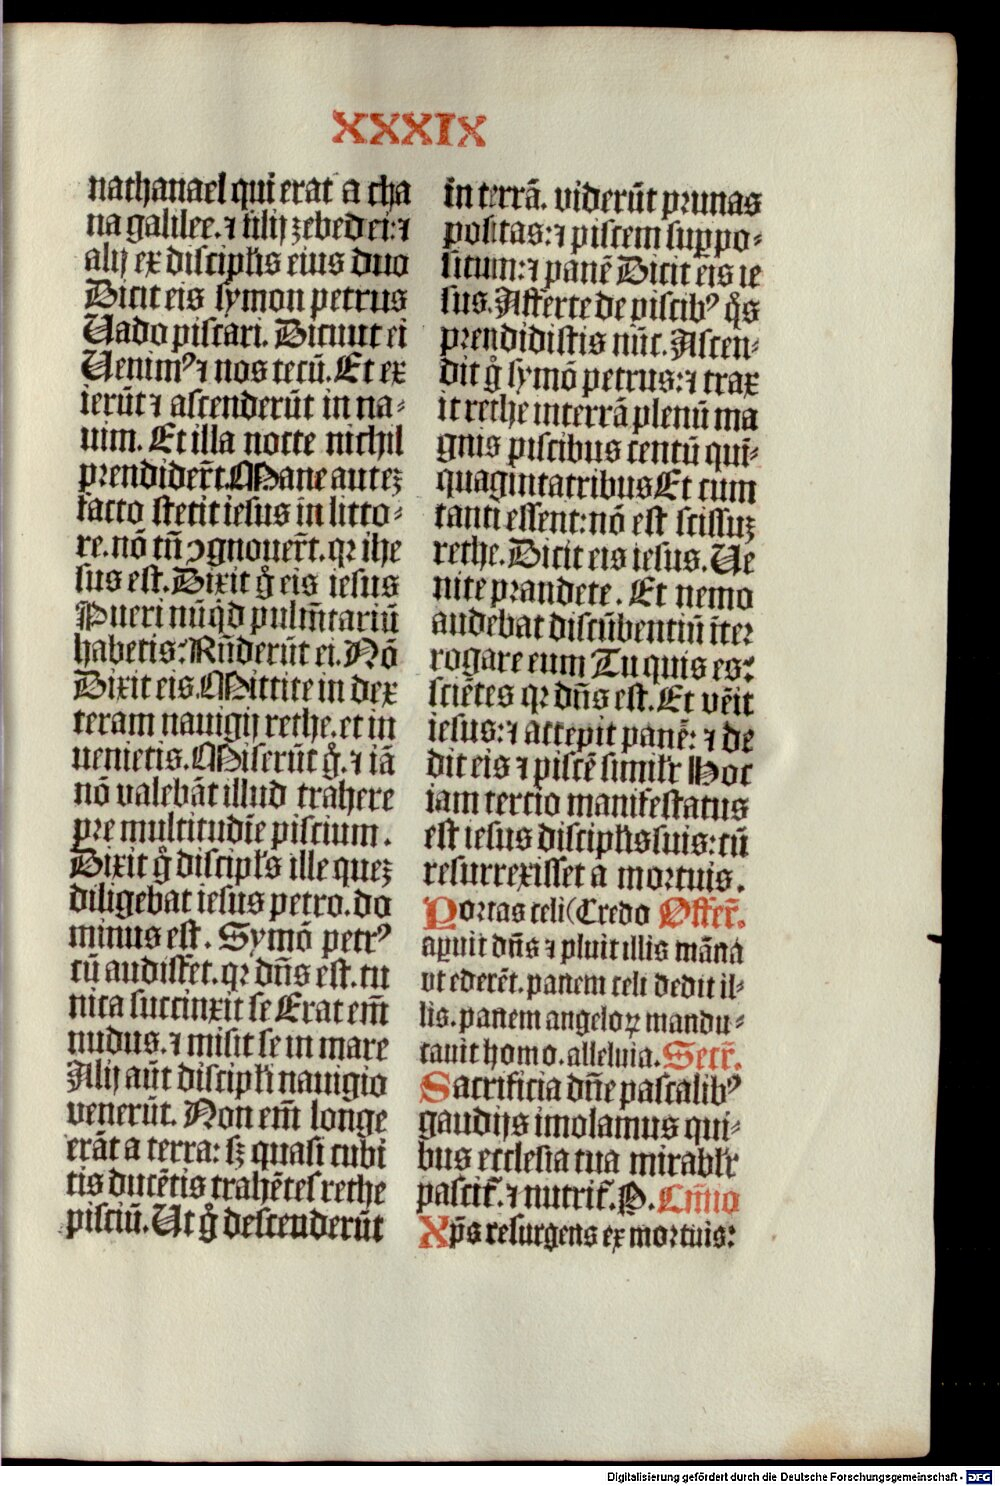 XXXIX
nathanael qui erat a cha
na galilee. ⁊ filij zebedei: ⁊
alij ex discipĺis eius duo
Dicit eis symon petrus
Uado piscari. Dicunt ei
Uenimꝰ ⁊ nos tecū. Et ex
ierūt ⁊ ascenderūt in na⸗
uim. Et illa nocte nichil
prendider̄t. Mane autez
facto stetit iesus in litto⸗
re. nō tn̄ ꝯgnouer̄t. qꝛ ihe
sus est. Dixit g̊ eis iesus
Pueri nūqͥd pulm̄tariū
habetis: Rn̄derūt ei. Nō
Dixit eis. Mittite in dex
teram nauigij rethe. et in
uenietis. Miserūt g̊. ⁊ iā
nō valebāt illud trahere
pre multitudīe piscium.
Dixit g̊ discipĺs ille quez
diligebat iesus petro. do
minus est. Symō petrꝰ
cū audisset. qꝛ dn̄s est. tu
nica succinxit se Erat em̄
nudus. ⁊ misit se in mare
Alij aūt discipĺi nauigio
venerūt. Non em̄ longe
erāt a terra: sꝫ quasi cubi
tis ducētis trahētes rethe
pisciū. Ut g̊ descenderūt
in terrā. viderūt prunas
positas: ⁊ piscem suppo⸗
situm: ⁊ panē Dicit eis ie
sus. Afferte de piscibꝰ qͦs
prendidistis nūc. Ascen⸗
dit g̊ symō petrus: ⁊ trax
it rethe in terrā plenū ma
gnis piscibus centū quī⸗
quaginta tribus Et cum
tanti essent: nō est scissuꝫ
rethe. Dicit eis iesus. Ue
nite prandete. Et nemo
audebat discūbentiū īter
rogare eum Tu quis es:
sciētes qꝛ dn̄s est. Et vēit
iesus: ⁊ accepit panē: ⁊ de
dit eis ⁊ piscē similꝛ Hoc
iam tercio manifestatus
est iesus discipĺis suis: cū
resurrexisset a mortuis.
Portas celi (Credo Offer̄.
aꝑuit dn̄s ⁊ pluit illis māna
vt ederēt. panem celi dedit il⸗
lis. panem angeloꝝ mandu⸗
cauit homo. alleluia. Secr̄.
Sacrificia dn̄e pascalibꝰ
gaudijs imolamus qui⸗
bus ecclesia tua mirablꝛ
pascit̄. ⁊ nutrit̄. P. Cm̄io
Xp̄s resurgens ex mortuis:
Digitalisierung gefördert durch die Deutsche Forschungsgemeinschaft - DFG